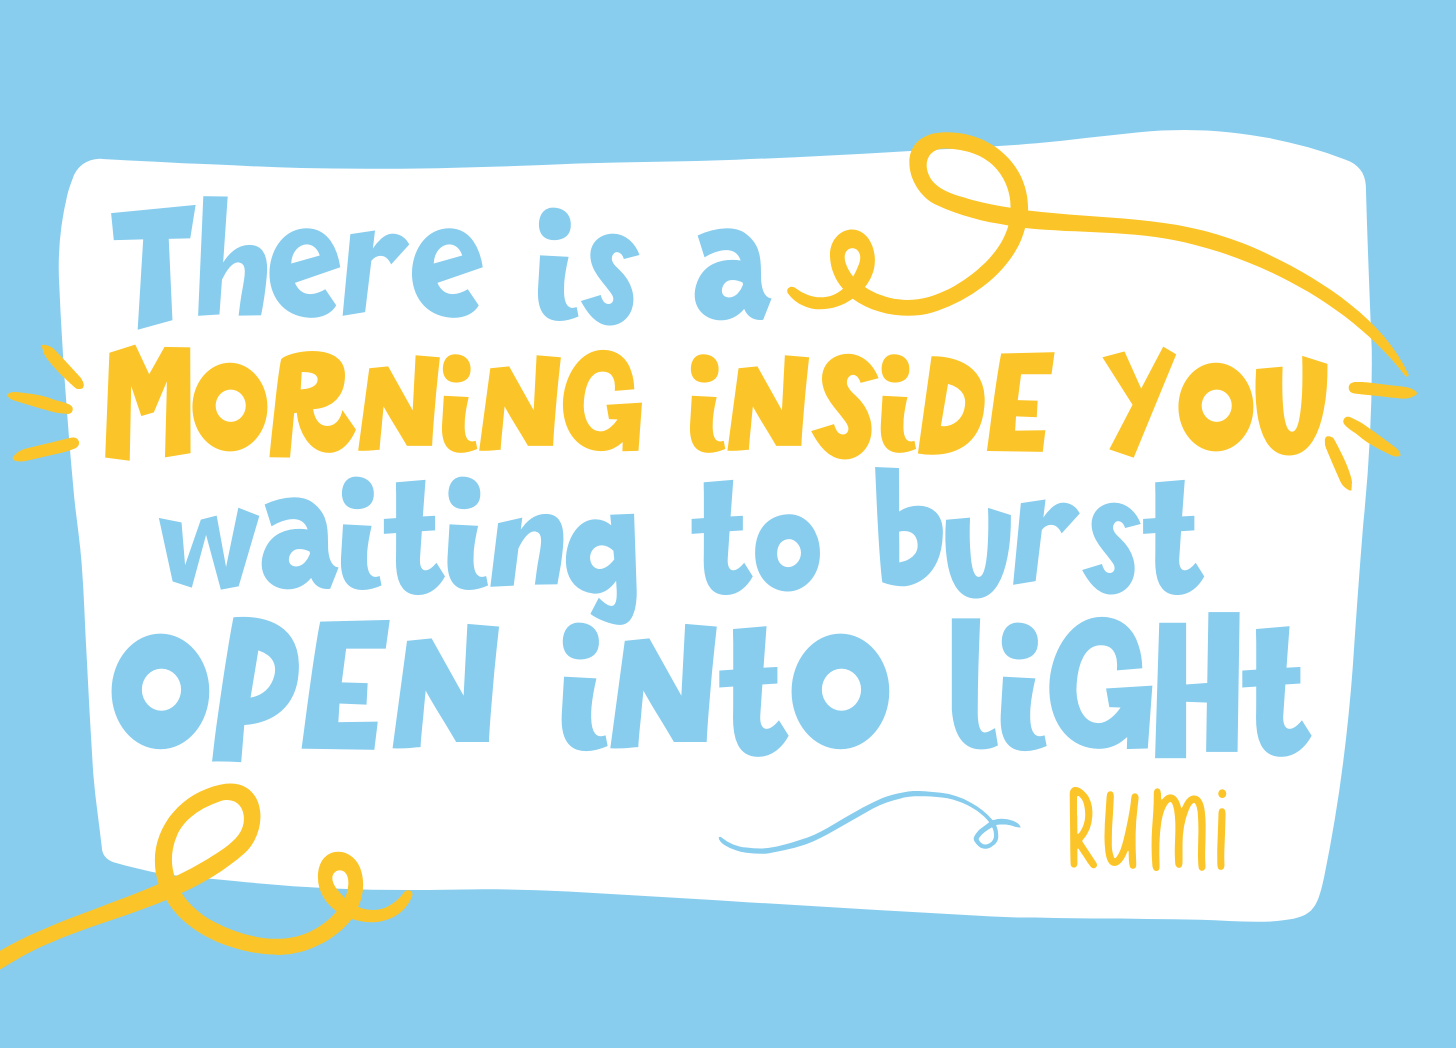 There is a
MORNiNG iNSiDE YOU
waiting to burst
OPEN iNtO liGHt
RUMi